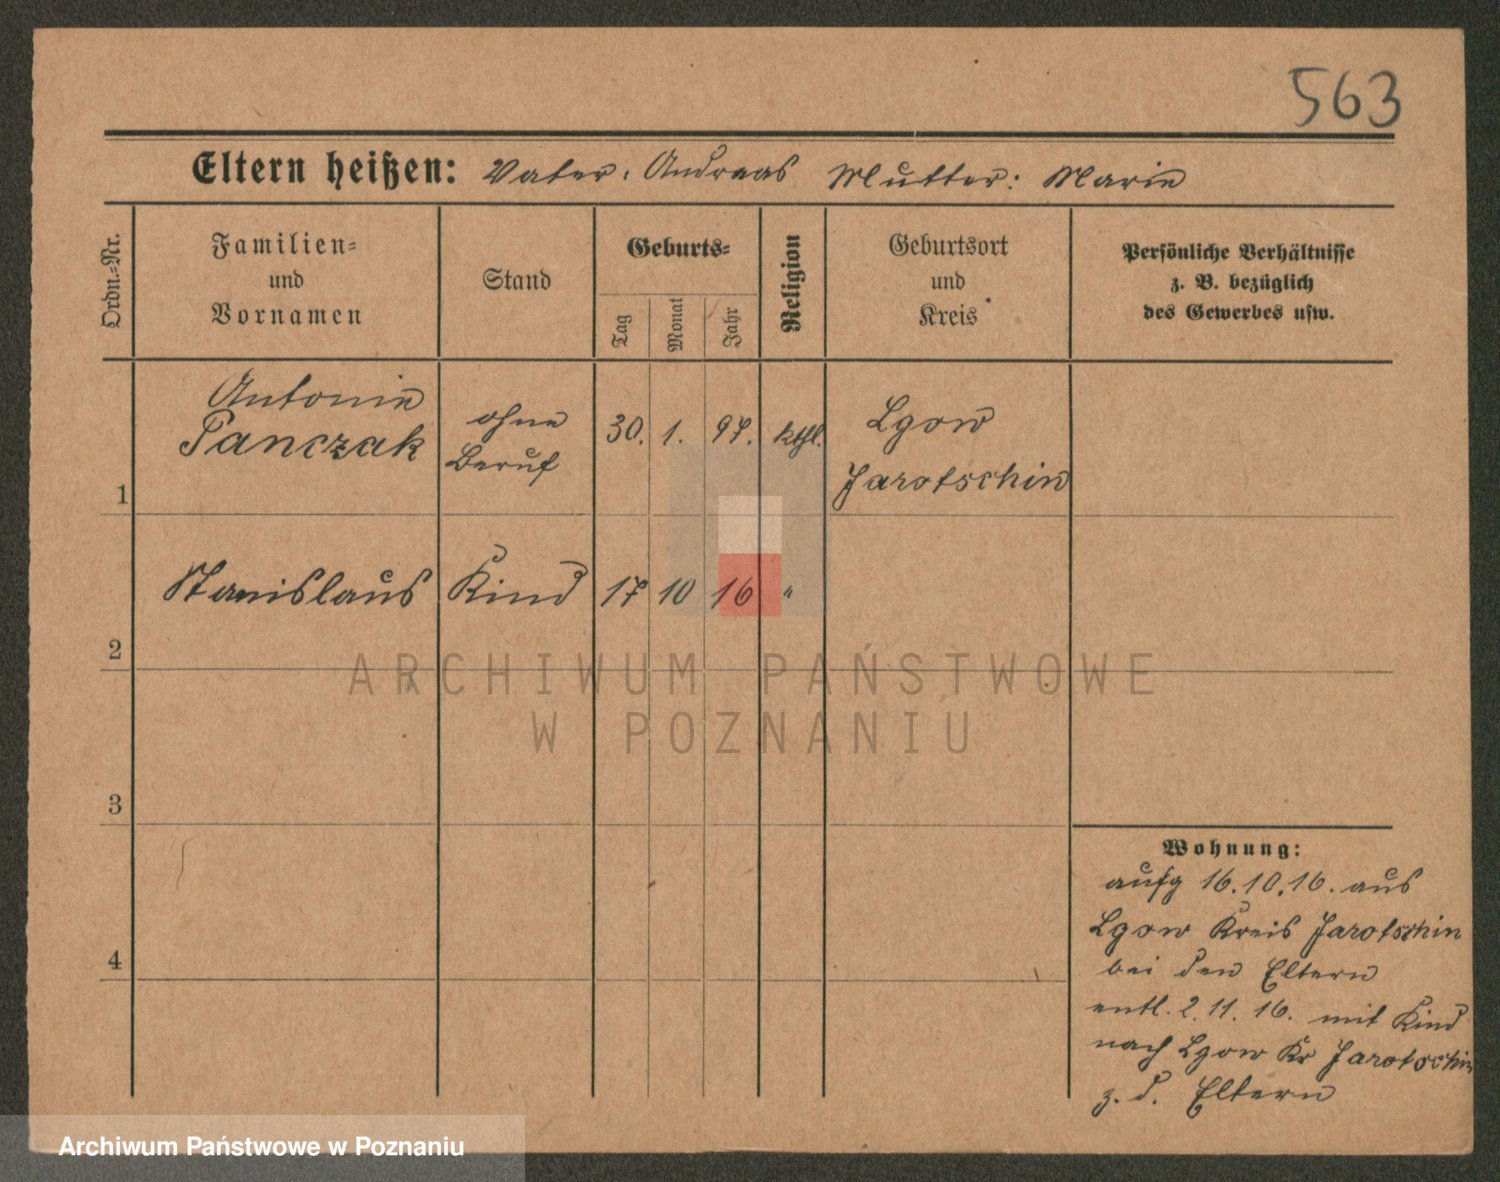 563
Eltern heißen: Vater: Andreas Mutter: Marie
Ordn.=Nr.
Familien=
und
Vornamen
Stand
Geburts=
Tag
Monat
Jahr
Religion
Geburtsort
und
Kreis
Persönliche Verhältnisse
z. B. bezüglich
des Gewerbes usw.
1
Antonie
Panczak
ohne
Beruf
30. 1. 97. kthl.
Lgow
Jarotschin
2
Stanislaus Kind 17 10 16 "
3
4
Wohnung:
aufg 16.10.16. aus
Lgow Kreis Jarotschin
bei den Eltern
entl. 2.11.16. mit Kind
nach Lgow Kr Jarotschin
z. d. Eltern
ARCHIWUM PAŃSTWOWE
W POZNANIU
Archiwum Państwowe w Poznaniu